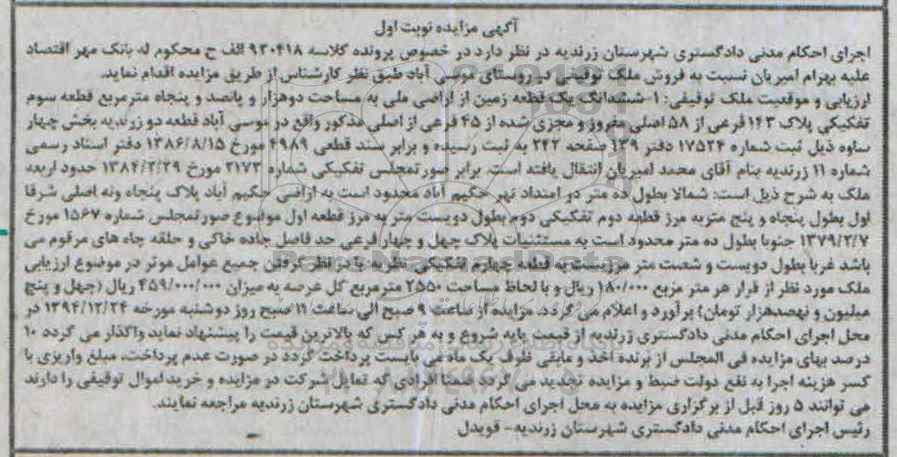 آگهی مزایده نوبت اول
اجرای احکام مدنی دادگستری شهرستان زرندیه در نظر دارد در خصوص پرونده کلاسه ۹۳۰۴۱۸ الف ح محکوم له بانک مهر اقتصاد
علیه بهرام امیریان نسبت به فروش ملک توقیفی در روستای موسی آباد طبق نظر کارشناس از طریق مزایده اقدام نماید.
ارزیابی و موقعیت ملک توقیفی: ۱-ششدانگ یک قطعه زمین از اراضی ملی به مساحت دوهزار و پانصد و پنجاه مترمربع قطعه سوم
تفکیکی پلاک ۱۴۳ فرعی از ۵۸ اصلی مفروز و مجزی شده از ۴۵ فرعی از اصلی مذکور واقع در موسی آباد قطعه دو زرندیه بخش چهار
ساوه ذیل ثبت شماره ۱۷۵۲۴ دفتر ۱۳۹ صفحه ۲۴۲ به ثبت رسیده و برابر سند قطعی ۴۹۸۹ مورخ ۱۳۸۶/۸/۱۵ دفتر اسناد رسمی
شماره ۱۱ زرندیه بنام آقای محمد امیریان انتقال یافته است. برابر صورتمجلس تفکیکی شماره ۲۱۷۳ مورخ ۱۳۸۴/۳/۲۹ حدود اربعه
ملک به شرح ذیل است: شمالا بطول ده متر در امتداد نهر حکیم آباد محدود است به اراضی حکیم آباد پلاک پنجاه ونه اصلی شرقا
اول بطول پنجاه و پنج متر به مرز قطعه دوم تفکیکی دوم بطول دویست متر به مرز قطعه اول موضوع صورتمجلس شماره ۱۵۶۷ مورخ
۱۳۷۹/۲/۷ جنوبا بطول ده متر محدود است به مستثنیات پلاک چهل و چهار فرعی حد فاصل جاده خاکی و حلقه چاه های مرقوم می
باشد غربا بطول دویست و شصت متر مرزیست به قطعه چهارم تفکیکی نظریه با در نظر گرفتن جمیع عوامل موثر در موضوع ارزیابی
ملک مورد نظر از قرار هر متر مربع ۱۸۰/۰۰۰ ریال و با لحاظ مساحت ۲۵۵۰ مترمربع کل عرصه به میزان ۴۵۹/۰۰۰/۰۰۰ ریال (چهل و پنج
میلیون و نهصدهزار تومان) برآورد و اعلام می گردد. مزایده از ساعت ۹ صبح الی ساعت ۱۱ صبح روز دوشنبه مورخه ۱۳۹۴/۱۲/۲۴ در
محل اجرای احکام مدنی دادگستری زرندیه از قیمت پایه شروع و به هر کس که بالاترین قیمت را پیشنهاد نماید واگذار می گردد ۱۰
درصد بهای مزایده فی المجلس از برنده اخذ و مابقی ظرف یک ماه می بایست پرداخت گردد در صورت عدم پرداخت، مبلغ واریزی با
کسر هزینه اجرا به نفع دولت ضبط و مزایده تجدید می گردد ضمنا افرادی که تمایل شرکت در مزایده و خرید اموال توقیفی را دارند
می توانند ۵ روز قبل از برگزاری مزایده به محل اجرای احکام مدنی دادگستری شهرستان زرندیه مراجعه نمایند.
رئیس اجرای احکام مدنی دادگستری شهرستان زرندیه- قویدل